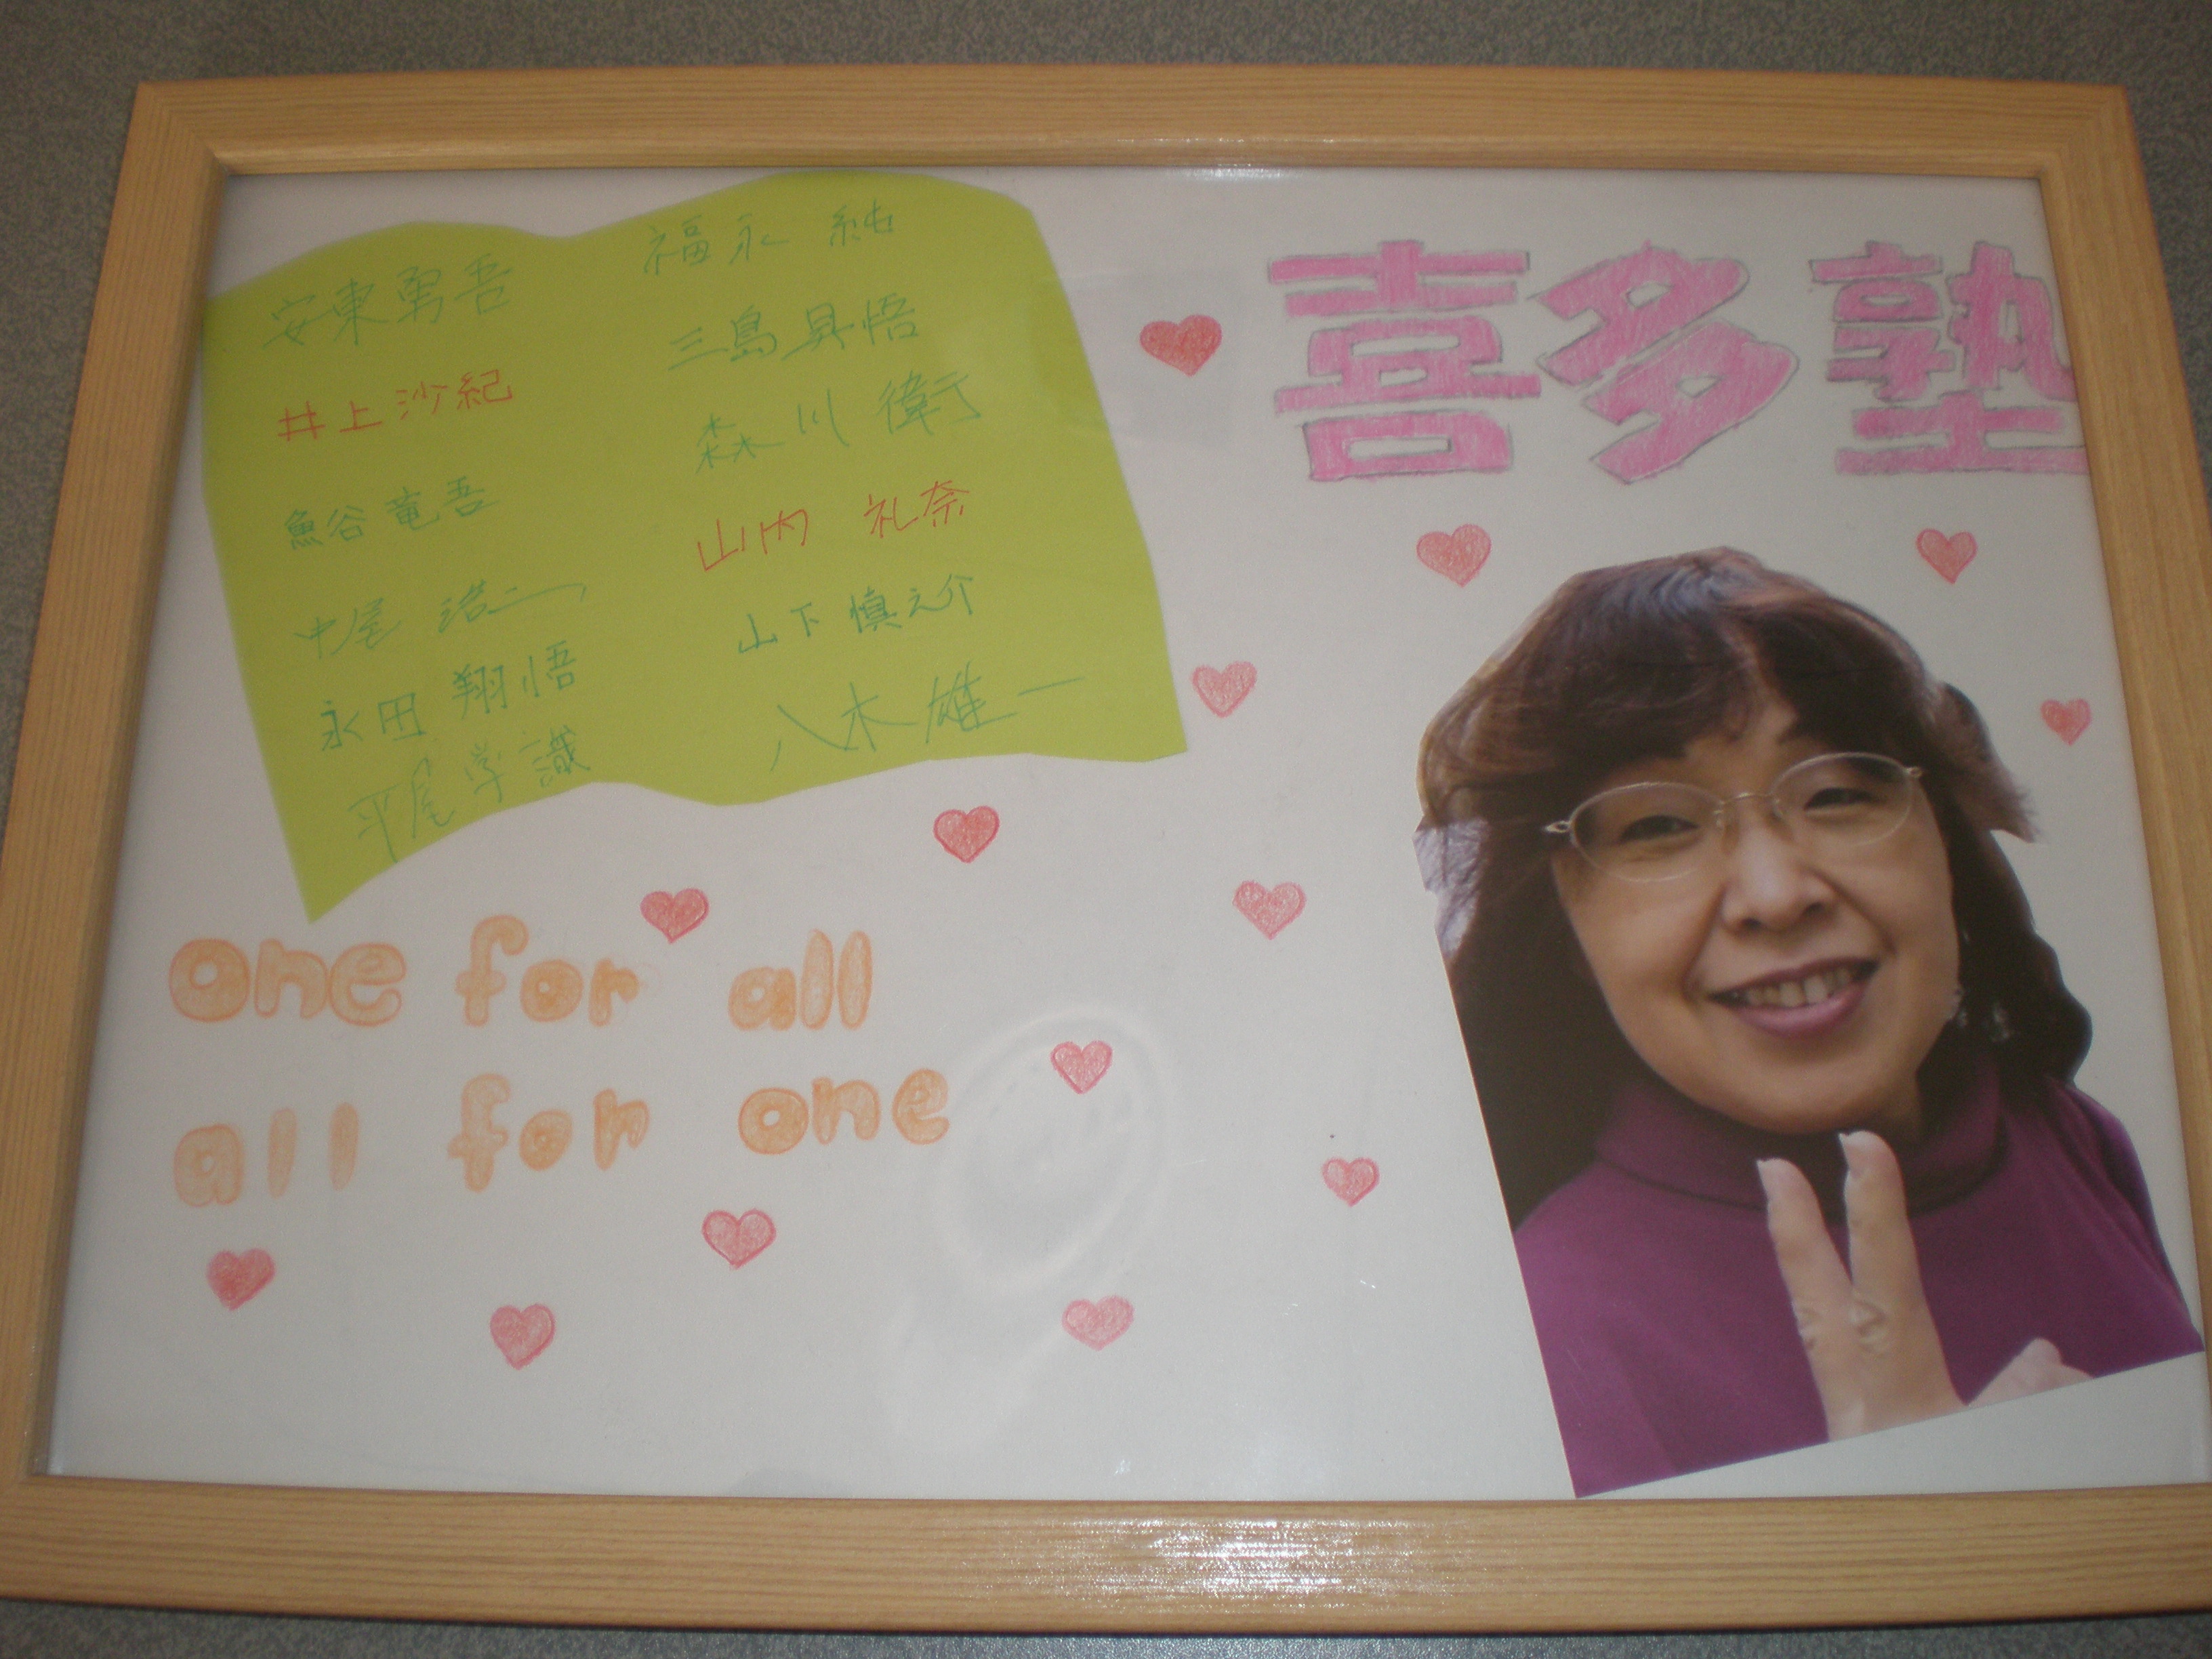 喜多塾
安東勇吾
井上沙紀
魚谷竜吾
中尾 浩二
永田 翔悟
平尾学識
福永 純
三島具悟
森川 衛
山内 礼奈
山下 慎之介
八木 雄一
one for all
all for one